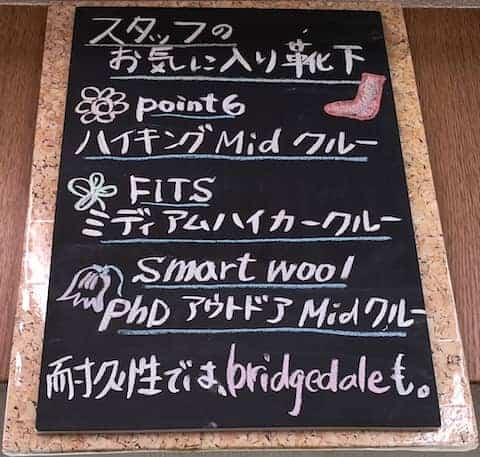 スタッフの
お気に入り靴下
point6
ハイキング Mid クルー
FITS
ミディアムハイカークルー
Smart wool
PhD アウトドア Mid クルー
耐久性では、bridgedaleも。